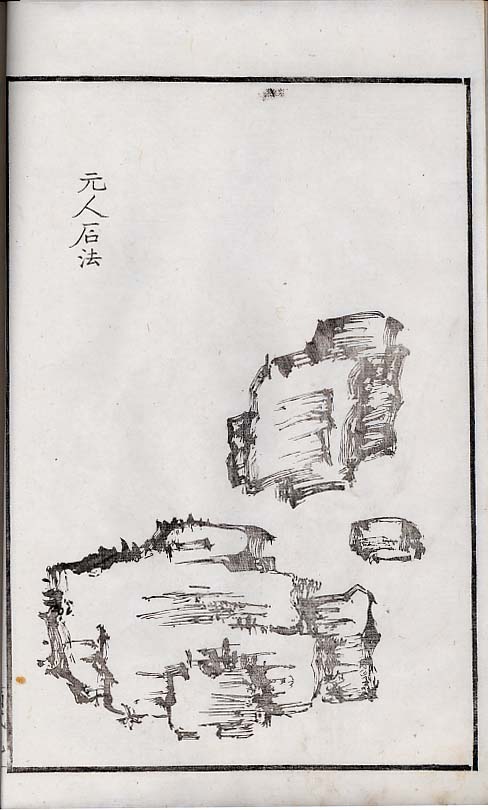 元人石法